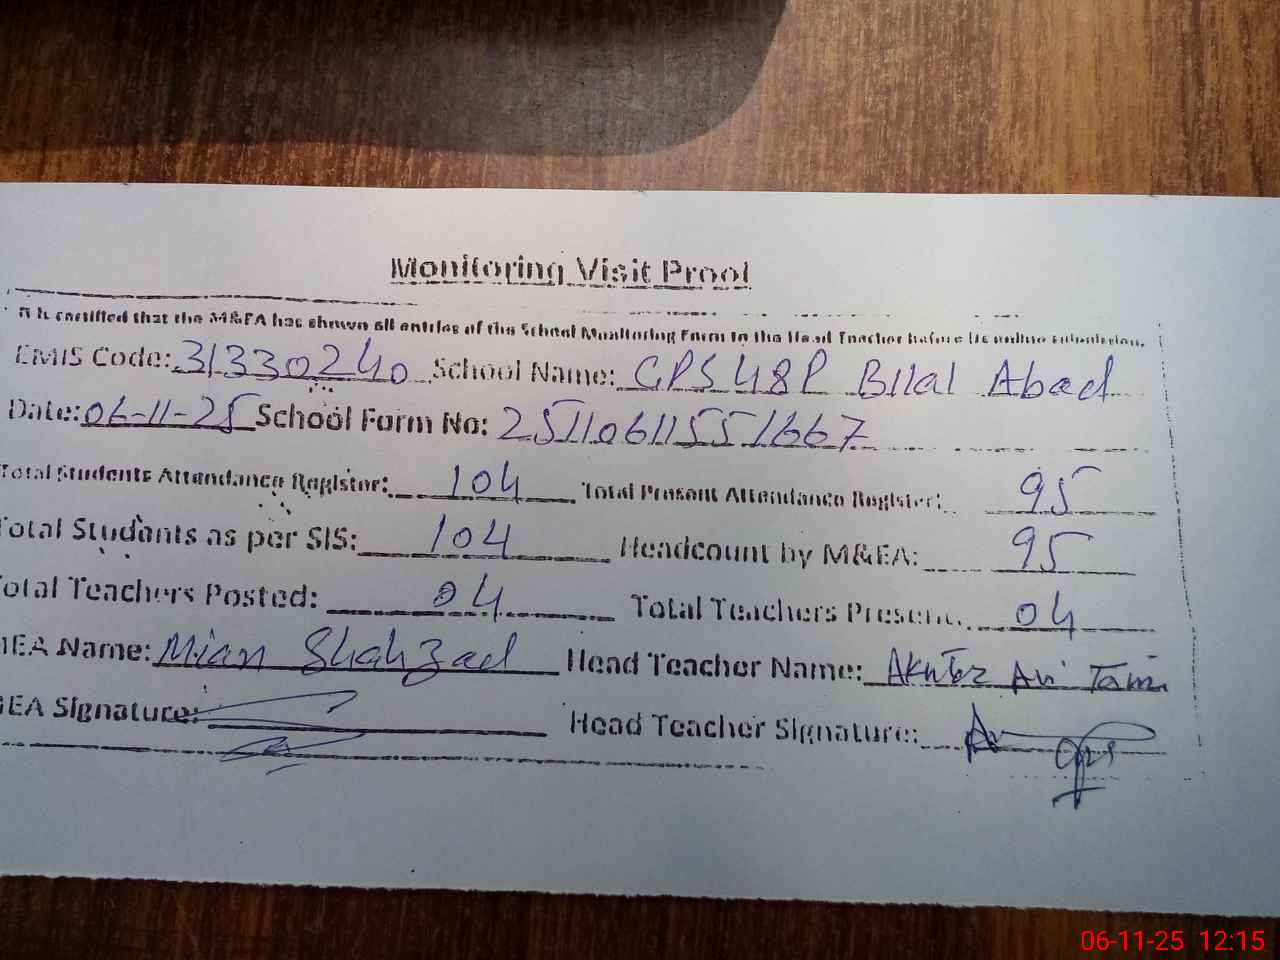 Monitoring Visit Proof
It is certified that the M&EA has shown all entries of the School Monitoring Form to the Head Teacher before its online submission.
EMIS Code: 31330240 School Name: GPS 48P Bilal Abad
Date: 06-11-25 School Form No: 25110611551667
Total Students Attendance Register: 104 Total Present Attendance Register: 95
Total Students as per SIS: 104 Headcount by M&EA: 95
Total Teachers Posted: 04 Total Teachers Present: 04
MEA Name: Mian Shahzad Head Teacher Name:
MEA Signature: Head Teacher Signature:
06-11-25 12:15